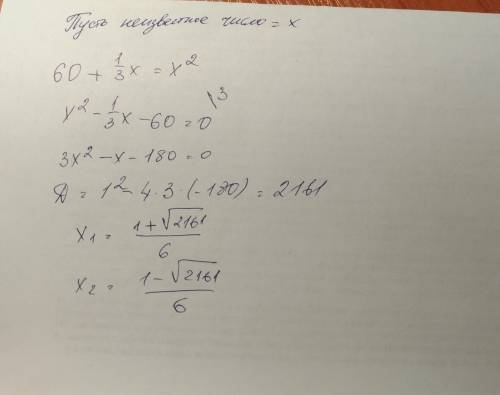 Пусть неизвестное число = x
60 + 1/3 x = x²
x² - 1/3 x - 60 = 0 \3
3x² - x - 180 = 0
Д = 1² - 4·3·(-180) = 2161
x₁ = (1+√2161)/6
x₂ = (1-√2161)/6